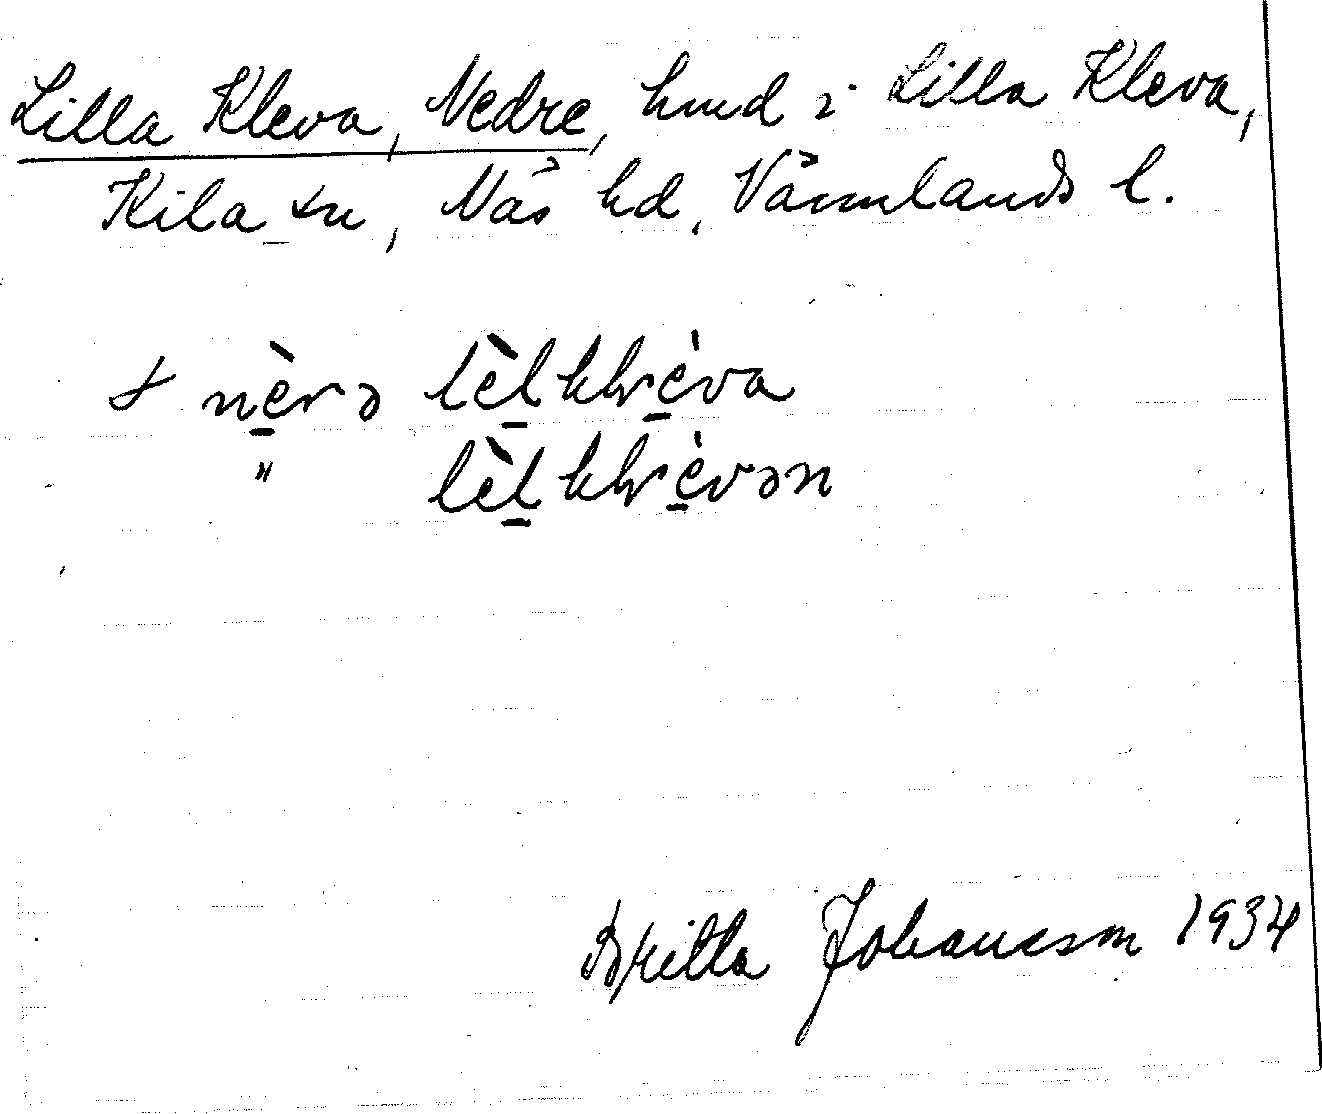 Lilla Kleva, Nedre, hmd i Lilla Kleva,
Kila sn, Näs hd, Värmlands l.
nè̱rə lèḻkhvè̱va
" lèḻkhvè̱vən
Britta Johansson 1934